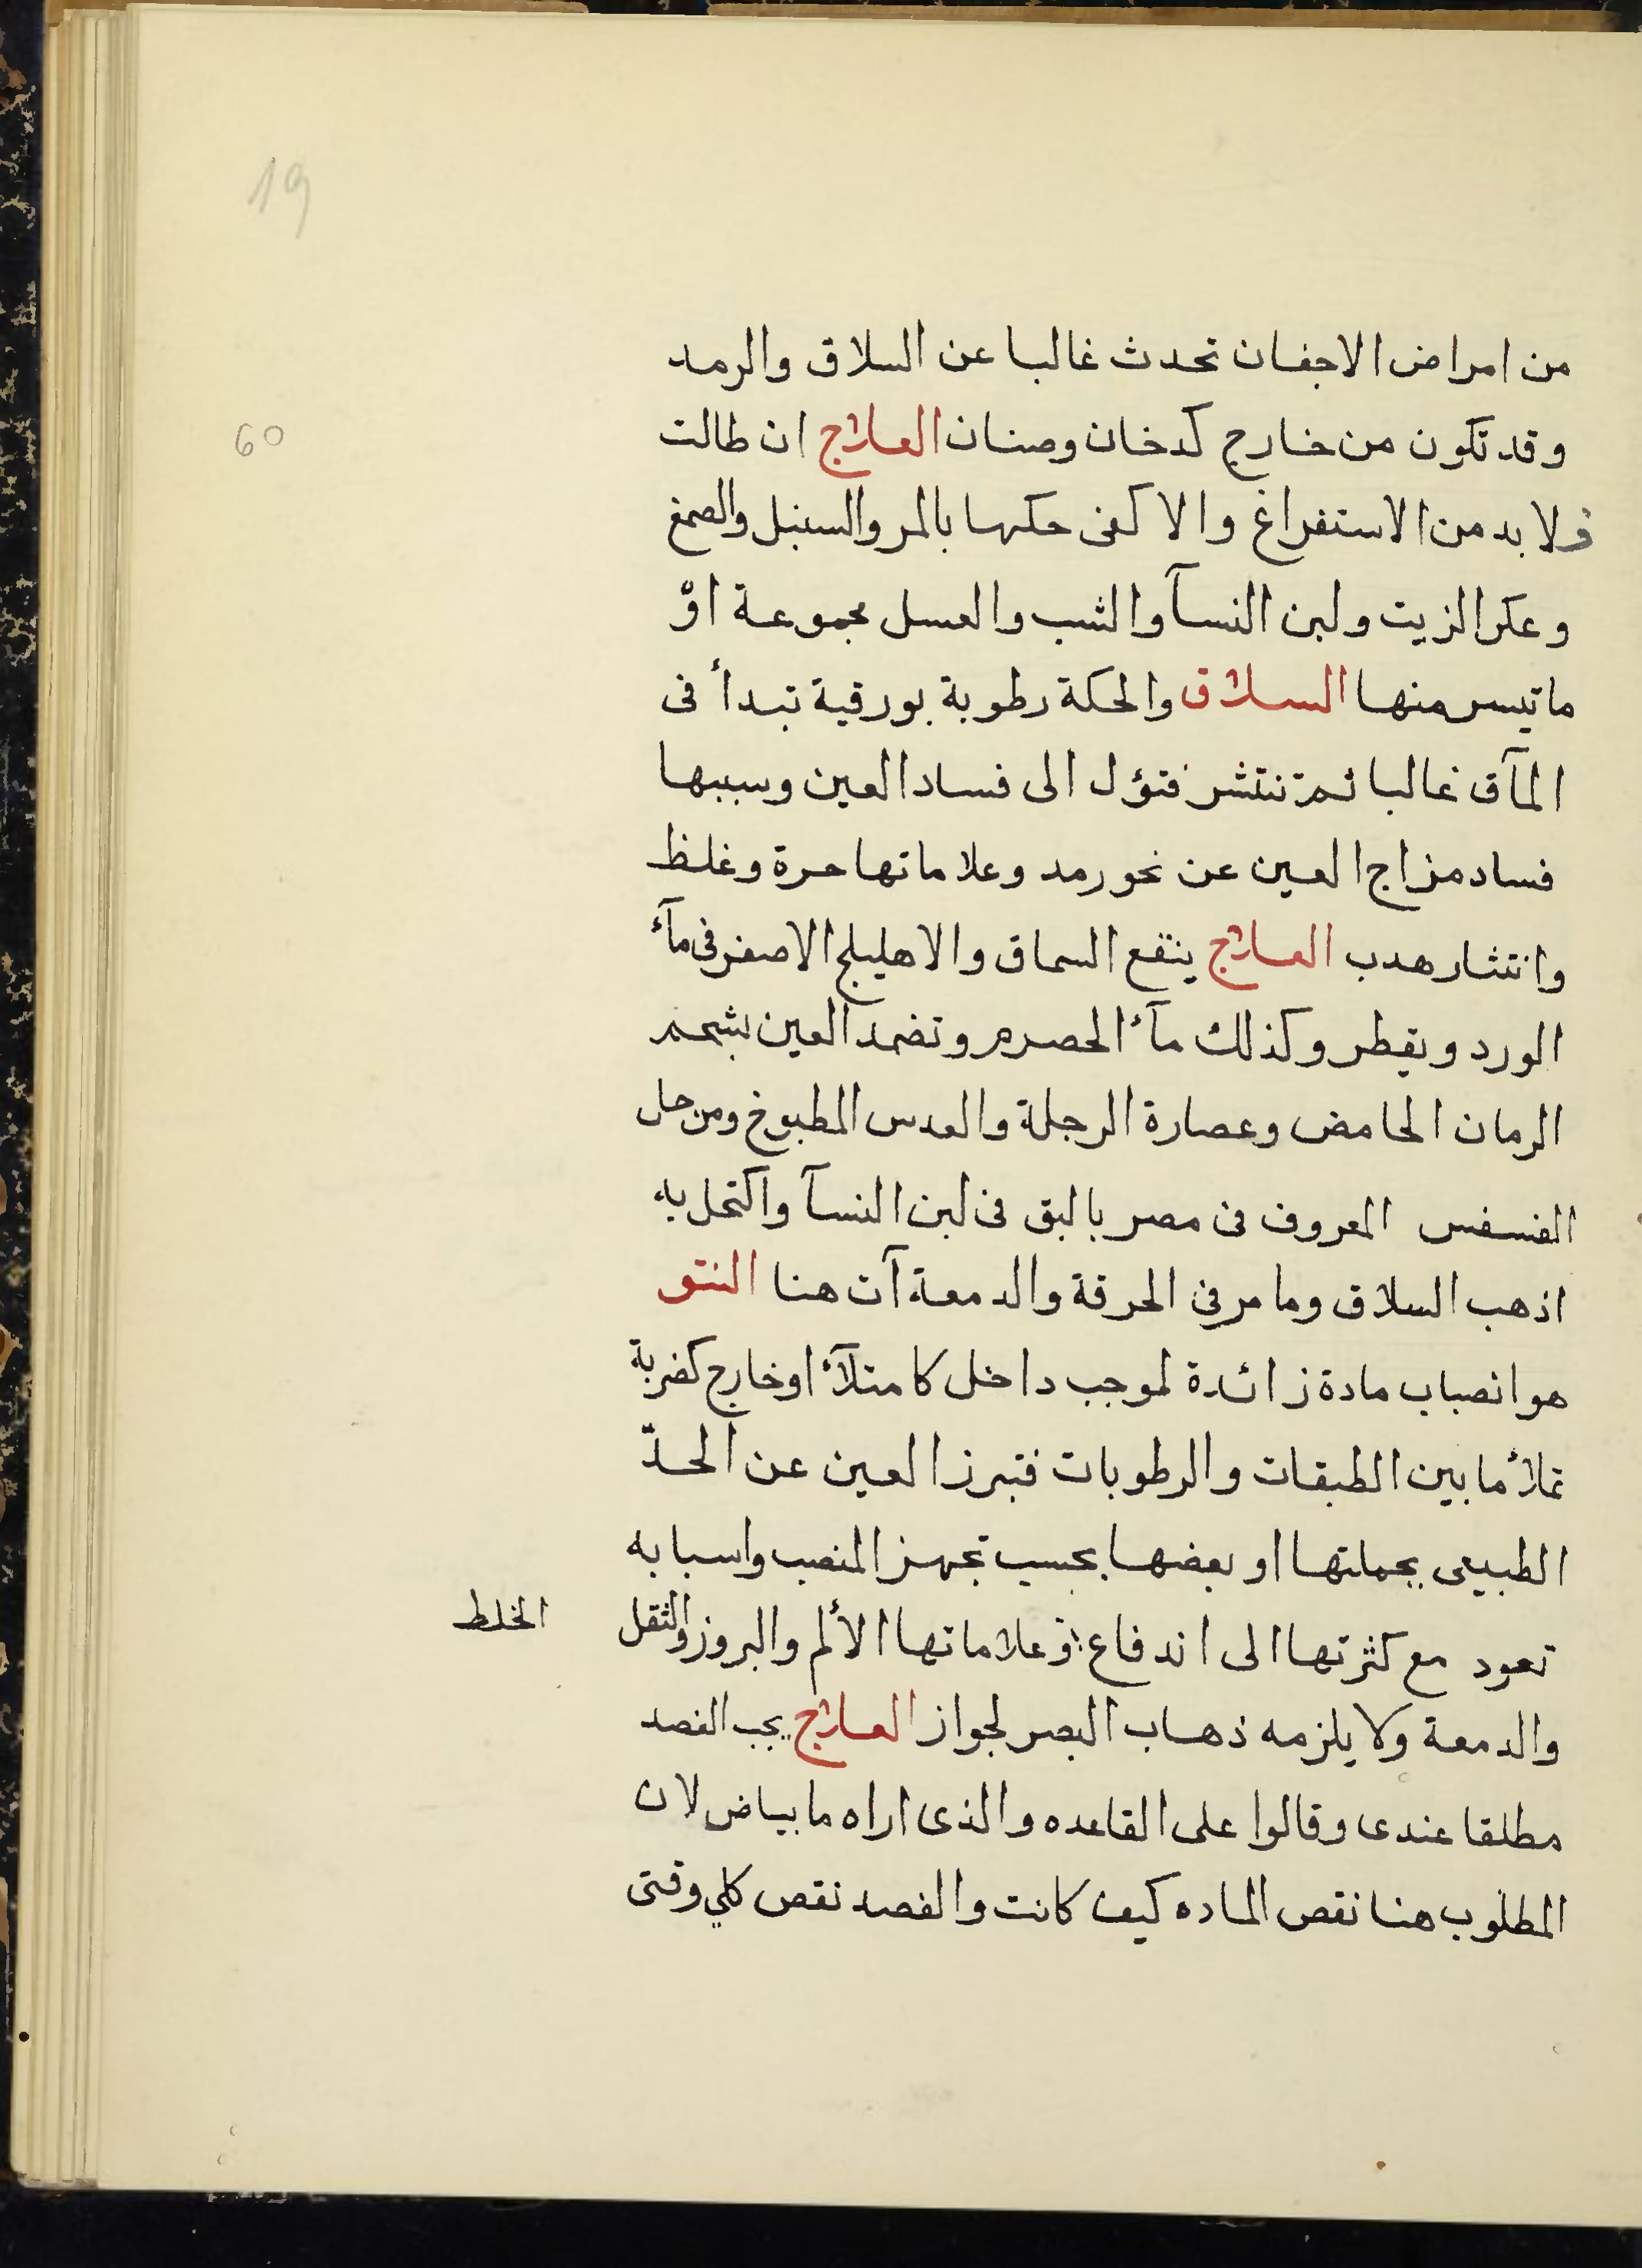 19
من امراض الاجفان تحدث غالبا عن السلاق والرمد
60
وقد تكون من خارج كدخان وصنان العلاج ان طالت
فلا بد من الاستفراغ والا كفى حكها بالمر والسنبل والصمغ
وعكر الزيت ولبن النسآ والشب والعسل مجموعة اوْ
ما تيسر منها السلاق والحكة رطوبة بورقية تبدأ فى
المآق غالبا ثم تنتشر فتؤل الى فساد العين وسببها
فساد مزاج العين عن نحو رمد وعلاماتها حمرة وغلظ
وانتثار هدب العلاج ينقع السماق والاهليلج الاصفر فى مآء
الورد ويقطر وكذلك مآء الحصرم وتضمد العين بشحم
الرمان الحامض وعصارة الرجلة والعدس المطبوخ ومن حل
الفسفس المعروف فى مصر بالبق فى لبن النسآ واكتحل به
اذهب السلاق وما مر فى الحرقة والدمعة آت هنا النتو
هو انصباب مادة زائدة لموجب داخل كامتلآء او خارج كضربة
تملأ ما بين الطبقات والرطوبات فتبرز العين عن الحدّ
الطبيعى بجملتها او بعضها بحسب تجهز المنصب واسبابه
تعود مع كثرتها الى اندفاع وعلاماتها الألم والبروز والثقل
الخلط
والدمعة ولا يلزمه ذهاب البصر لجواز العلاج يجب الفصد
مطلقا عندى وقالوا على القاعده والذى اراه ما بياض لان
المطلوب هنا نقص الماده كيف كانت والفصد نقص كلي وفتى